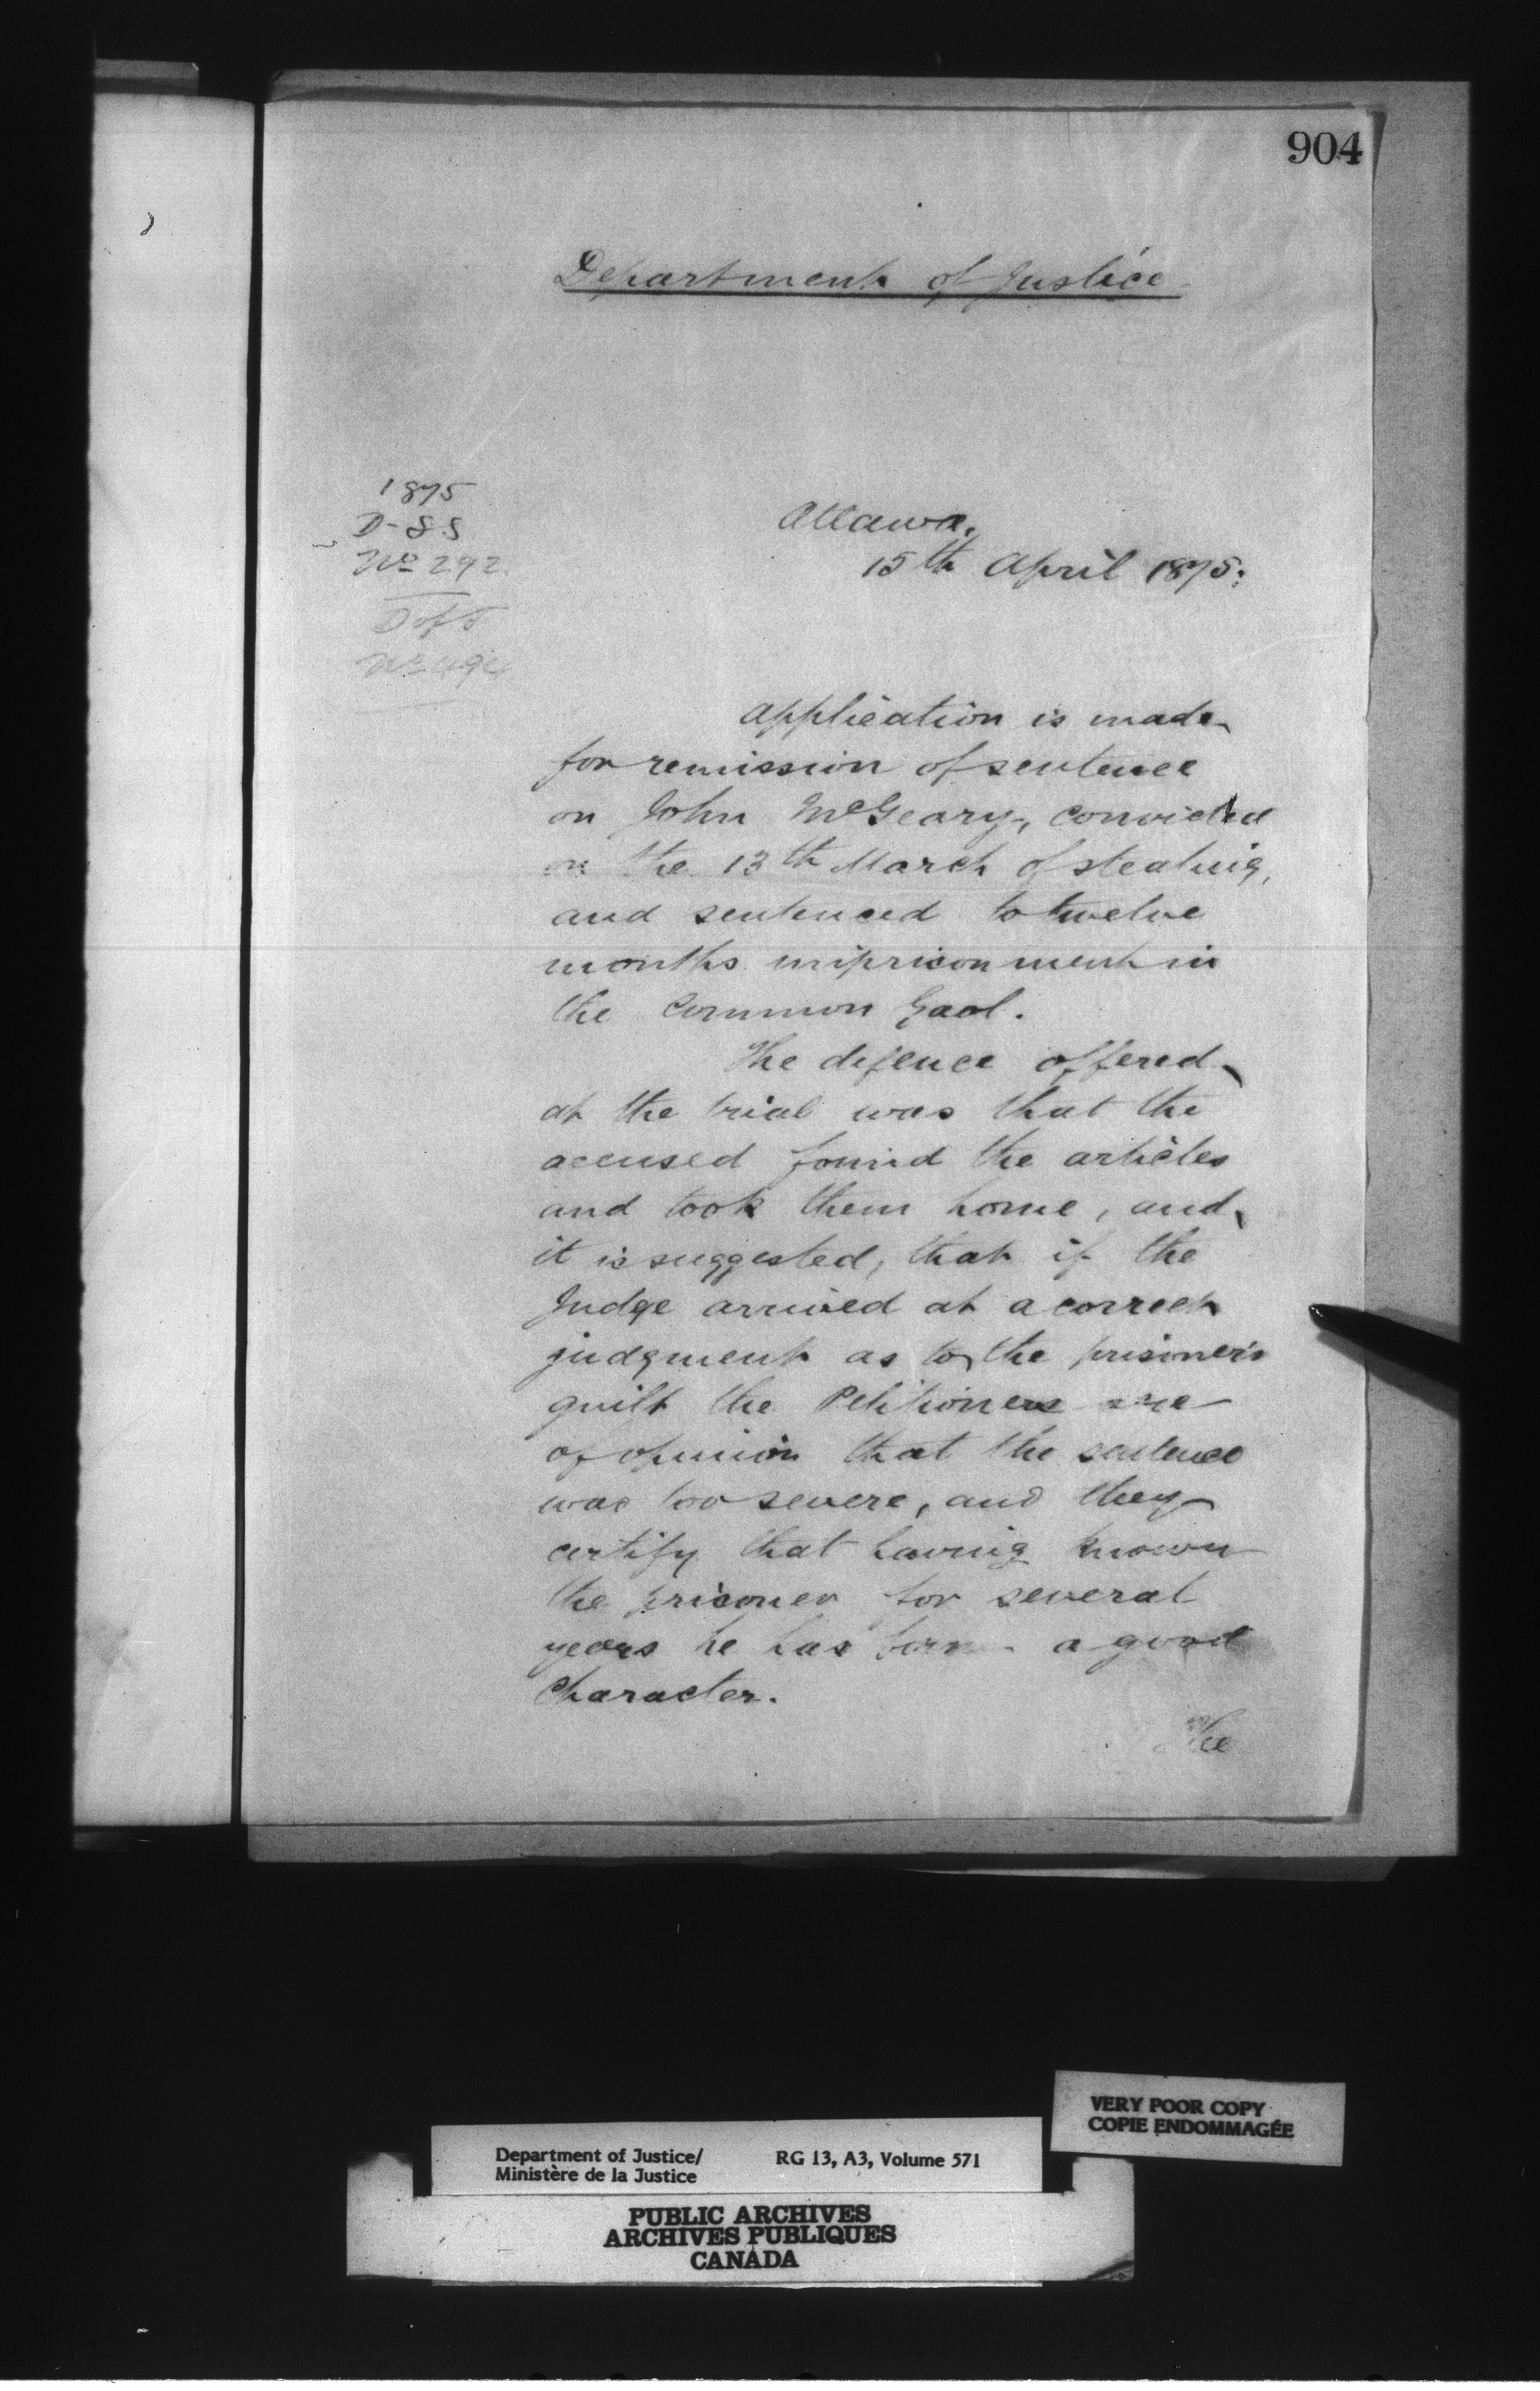 904
Department of Justice
1875
D-SS
No 292
D of J
Ottawa.
15th April 1875.
Application is made
for remission of sentence
on John McGeary, convicted
on the 13th March of stealing,
and sentenced to twelve
months imprisonment in
the Common Gaol.
The defence offered
at the trial was that the
accused found the articles
and took them home, and
it is suggested, that if the
Judge arrived at a correct
judgment as to the prisoner's
guilt the Petitioners are
of opinion that the sentence
was too severe, and they
certify that having known
the prisoner for several
years he has born a good
Character.
The
VERY POOR COPY
COPIE ENDOMMAGÉE
Department of Justice/ RG 13, A3, Volume 571
Ministère de la Justice
PUBLIC ARCHIVES
ARCHIVES PUBLIQUES
CANADA